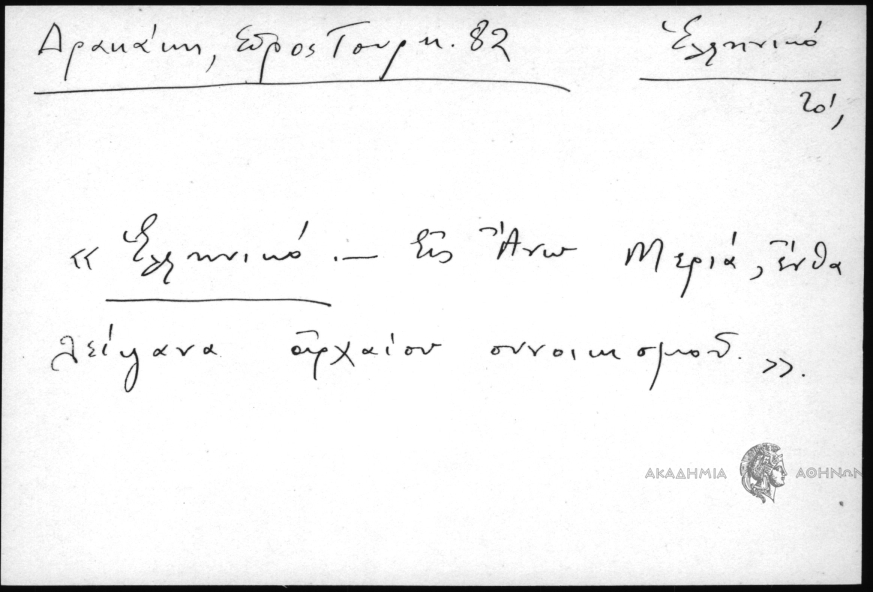 Δρακάκη, Σῦρος Τουρκ. 82 Ἑλληνικό
τό,
« Ἑλληνικό .— Εἰς Ἄνω Μεριά, ἔνθα
λείψανα ἀρχαίου συνοικισμοῦ. ».
ΑΚΑΔΗΜΙΑ ΑΘΗΝΩΝ